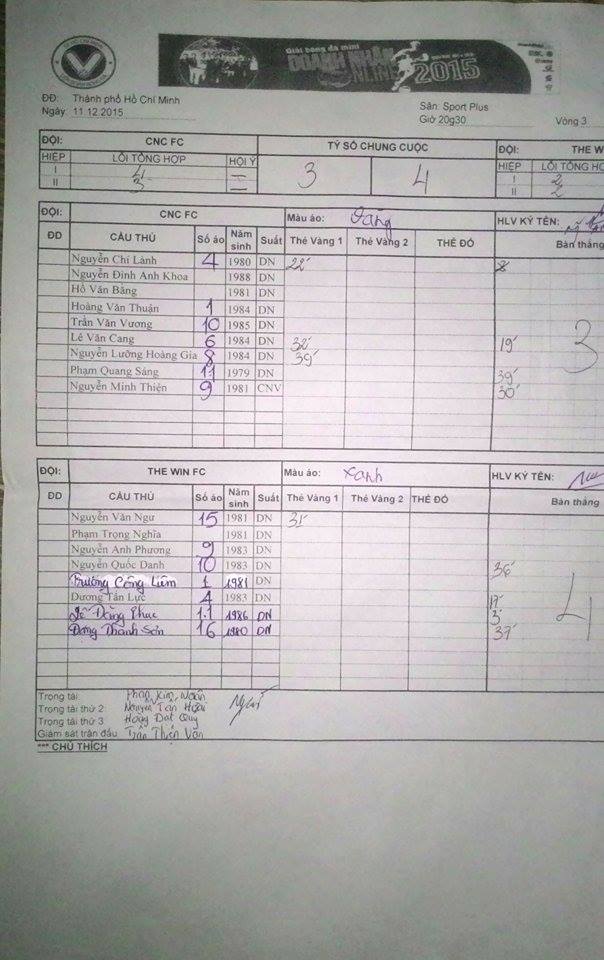 Giải bóng đá mini
DOANH NHÂN
ONLINE 2015
ĐĐ: Thành phố Hồ Chí Minh
Ngày: 11.12.2015
Sân: Sport Plus
Giờ 20g30 Vòng 3
ĐỘI: CNC FC TỶ SỐ CHUNG CUỘC ĐỘI: THE W
HIỆP LỖI TỔNG HỢP HỘI Ý 3 4 HIỆP LỖI TỔNG HỢ
I 4 I 2
II 3 II 2
ĐỘI: CNC FC Màu áo: Vàng HLV KÝ TÊN:
ĐD CẦU THỦ Số áo Năm sinh Suất Thẻ Vàng 1 Thẻ Vàng 2 THẺ ĐỎ Bàn thắng
Nguyễn Chí Lành 4 1980 DN 22'
Nguyễn Đình Anh Khoa 1988 DN
Hồ Văn Bằng 1981 DN
Hoàng Văn Thuận 1 1984 DN
Trần Văn Vương 10 1985 DN
Lê Văn Cang 6 1984 DN 32' 19' 3
Nguyễn Lưỡng Hoàng Gia 8 1984 DN 39'
Phạm Quang Sáng 11 1979 DN 39'
Nguyễn Minh Thiện 9 1981 CNV 30'
ĐỘI: THE WIN FC Màu áo: xanh HLV KÝ TÊN:
ĐD CẦU THỦ Số áo Năm sinh Suất Thẻ Vàng 1 Thẻ Vàng 2 THẺ ĐỎ Bàn thắng
Nguyễn Văn Ngư 15 1981 DN 31'
Phạm Trọng Nghĩa 1981 DN
Nguyễn Anh Phương 9 1983 DN
Nguyễn Quốc Danh 10 1983 DN 36'
Trương Công Liêm 1 1981 DN
Dương Tấn Lực 4 1983 DN 4
Lê Đăng Phúc 11 1986 DN 3'
Đặng Thanh Sơn 16 1980 DN 37'
Trọng tài: Phan Kim Ngân
Trọng tài thứ 2: Nguyễn Tấn Hoài
Trọng tài thứ 3 Hoàng Đạt Quý
Giám sát trận đấu: Trần Thiên Văn
*** CHÚ THÍCH